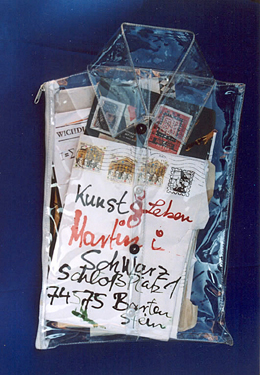 WICHD
Kunst & Leben
Martin i
Schwarz
Schloßplatz 1
74575 Barten
stein